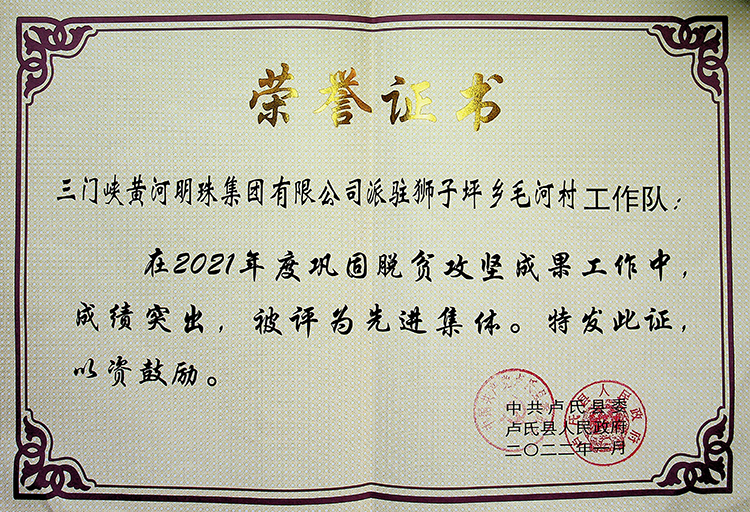 荣誉证书
三门峡黄河明珠集团有限公司派驻狮子坪乡毛河村工作队：
在2021年度巩固脱贫攻坚成果工作中，
成绩突出，被评为先进集体。特发此证，
以资鼓励。
中共卢氏县委
卢氏县人民政府
二〇二二年一月